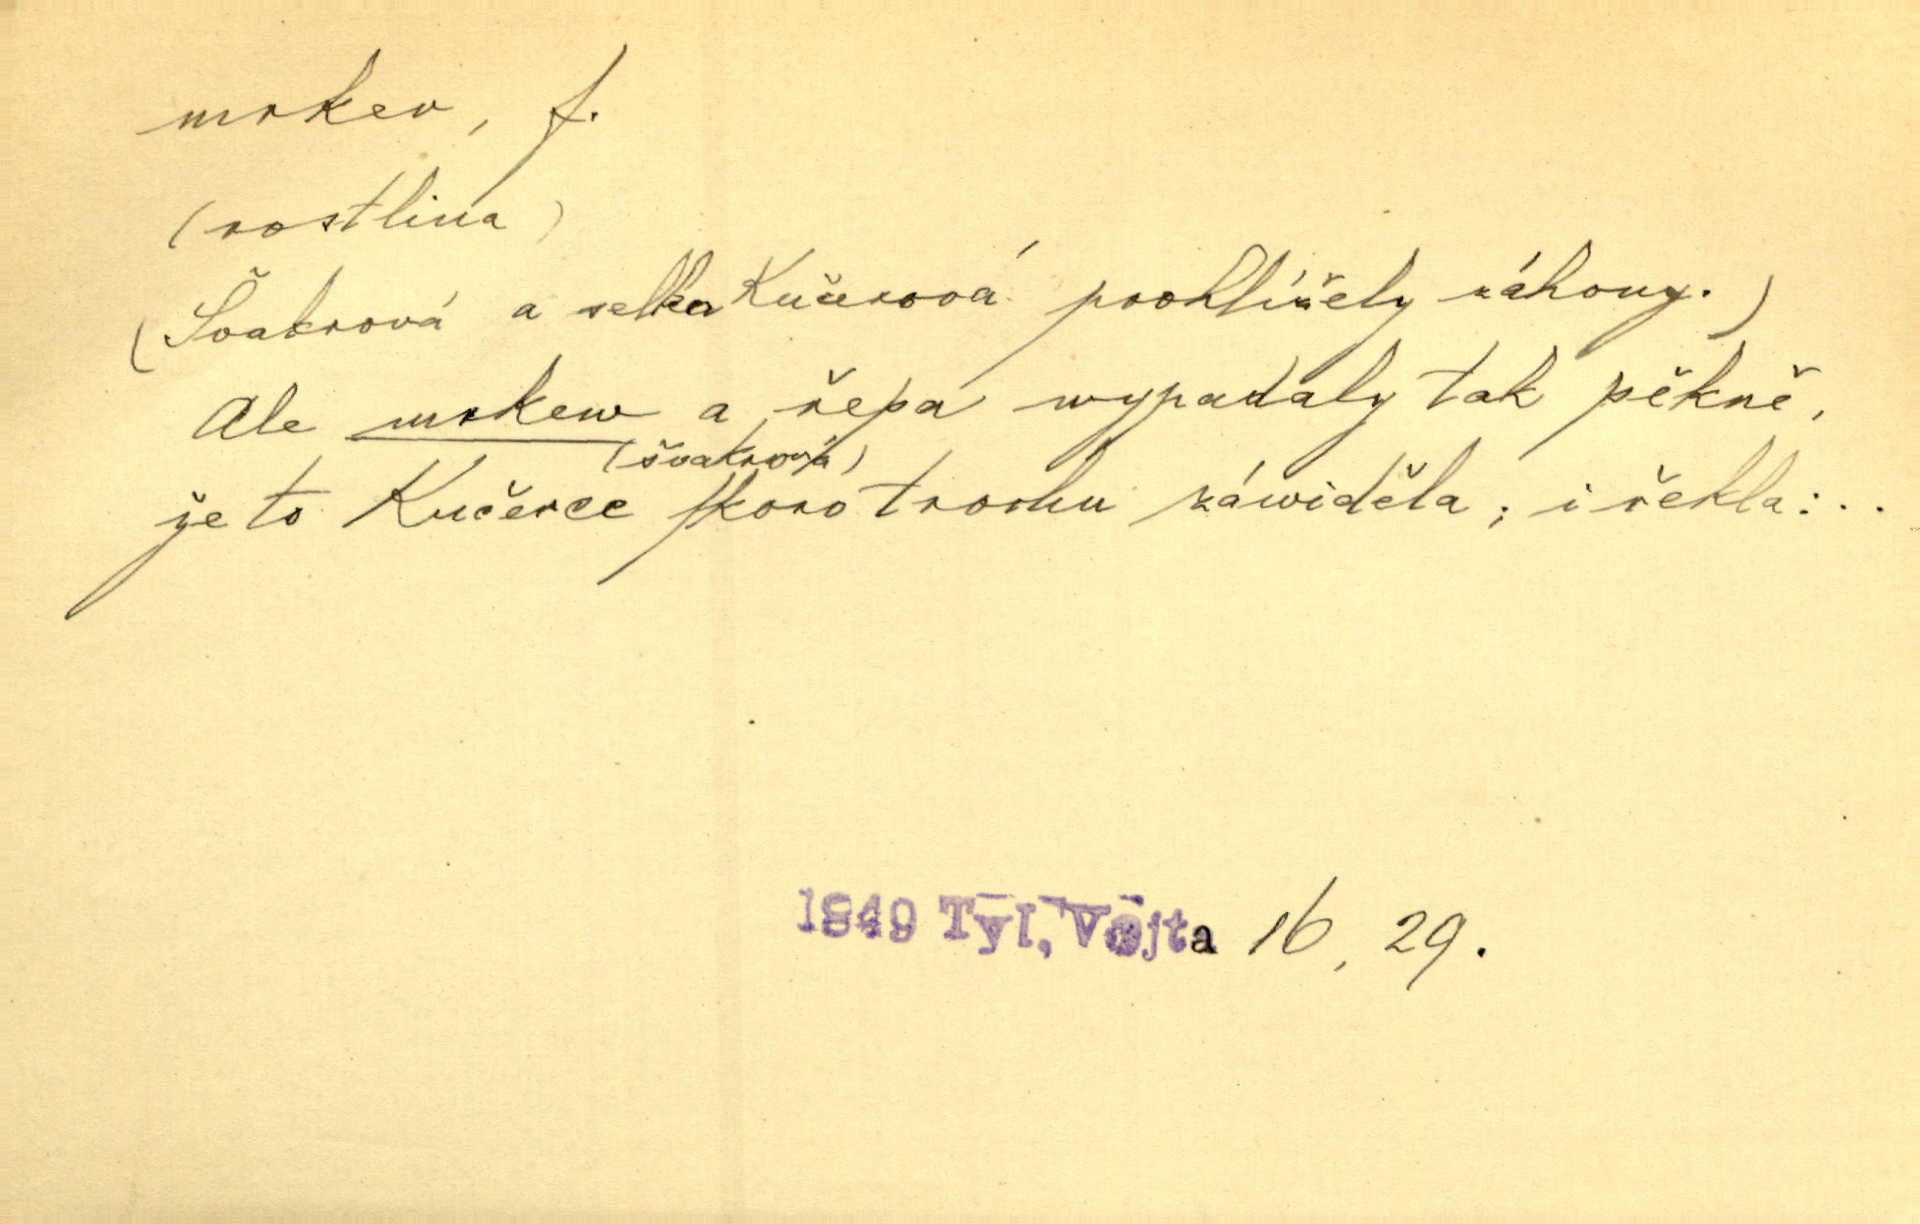 mrkev, f.
(rostlina)
(Švakrová a selka Kučerová prohlížely záhony.)
Ale mrkew a řepa wypadaly tak pěkně,
(švakrová)
že to Kučerce skoro trochu záwiděla; i řekla:..
1849 Tyl, Vojta 16, 29.